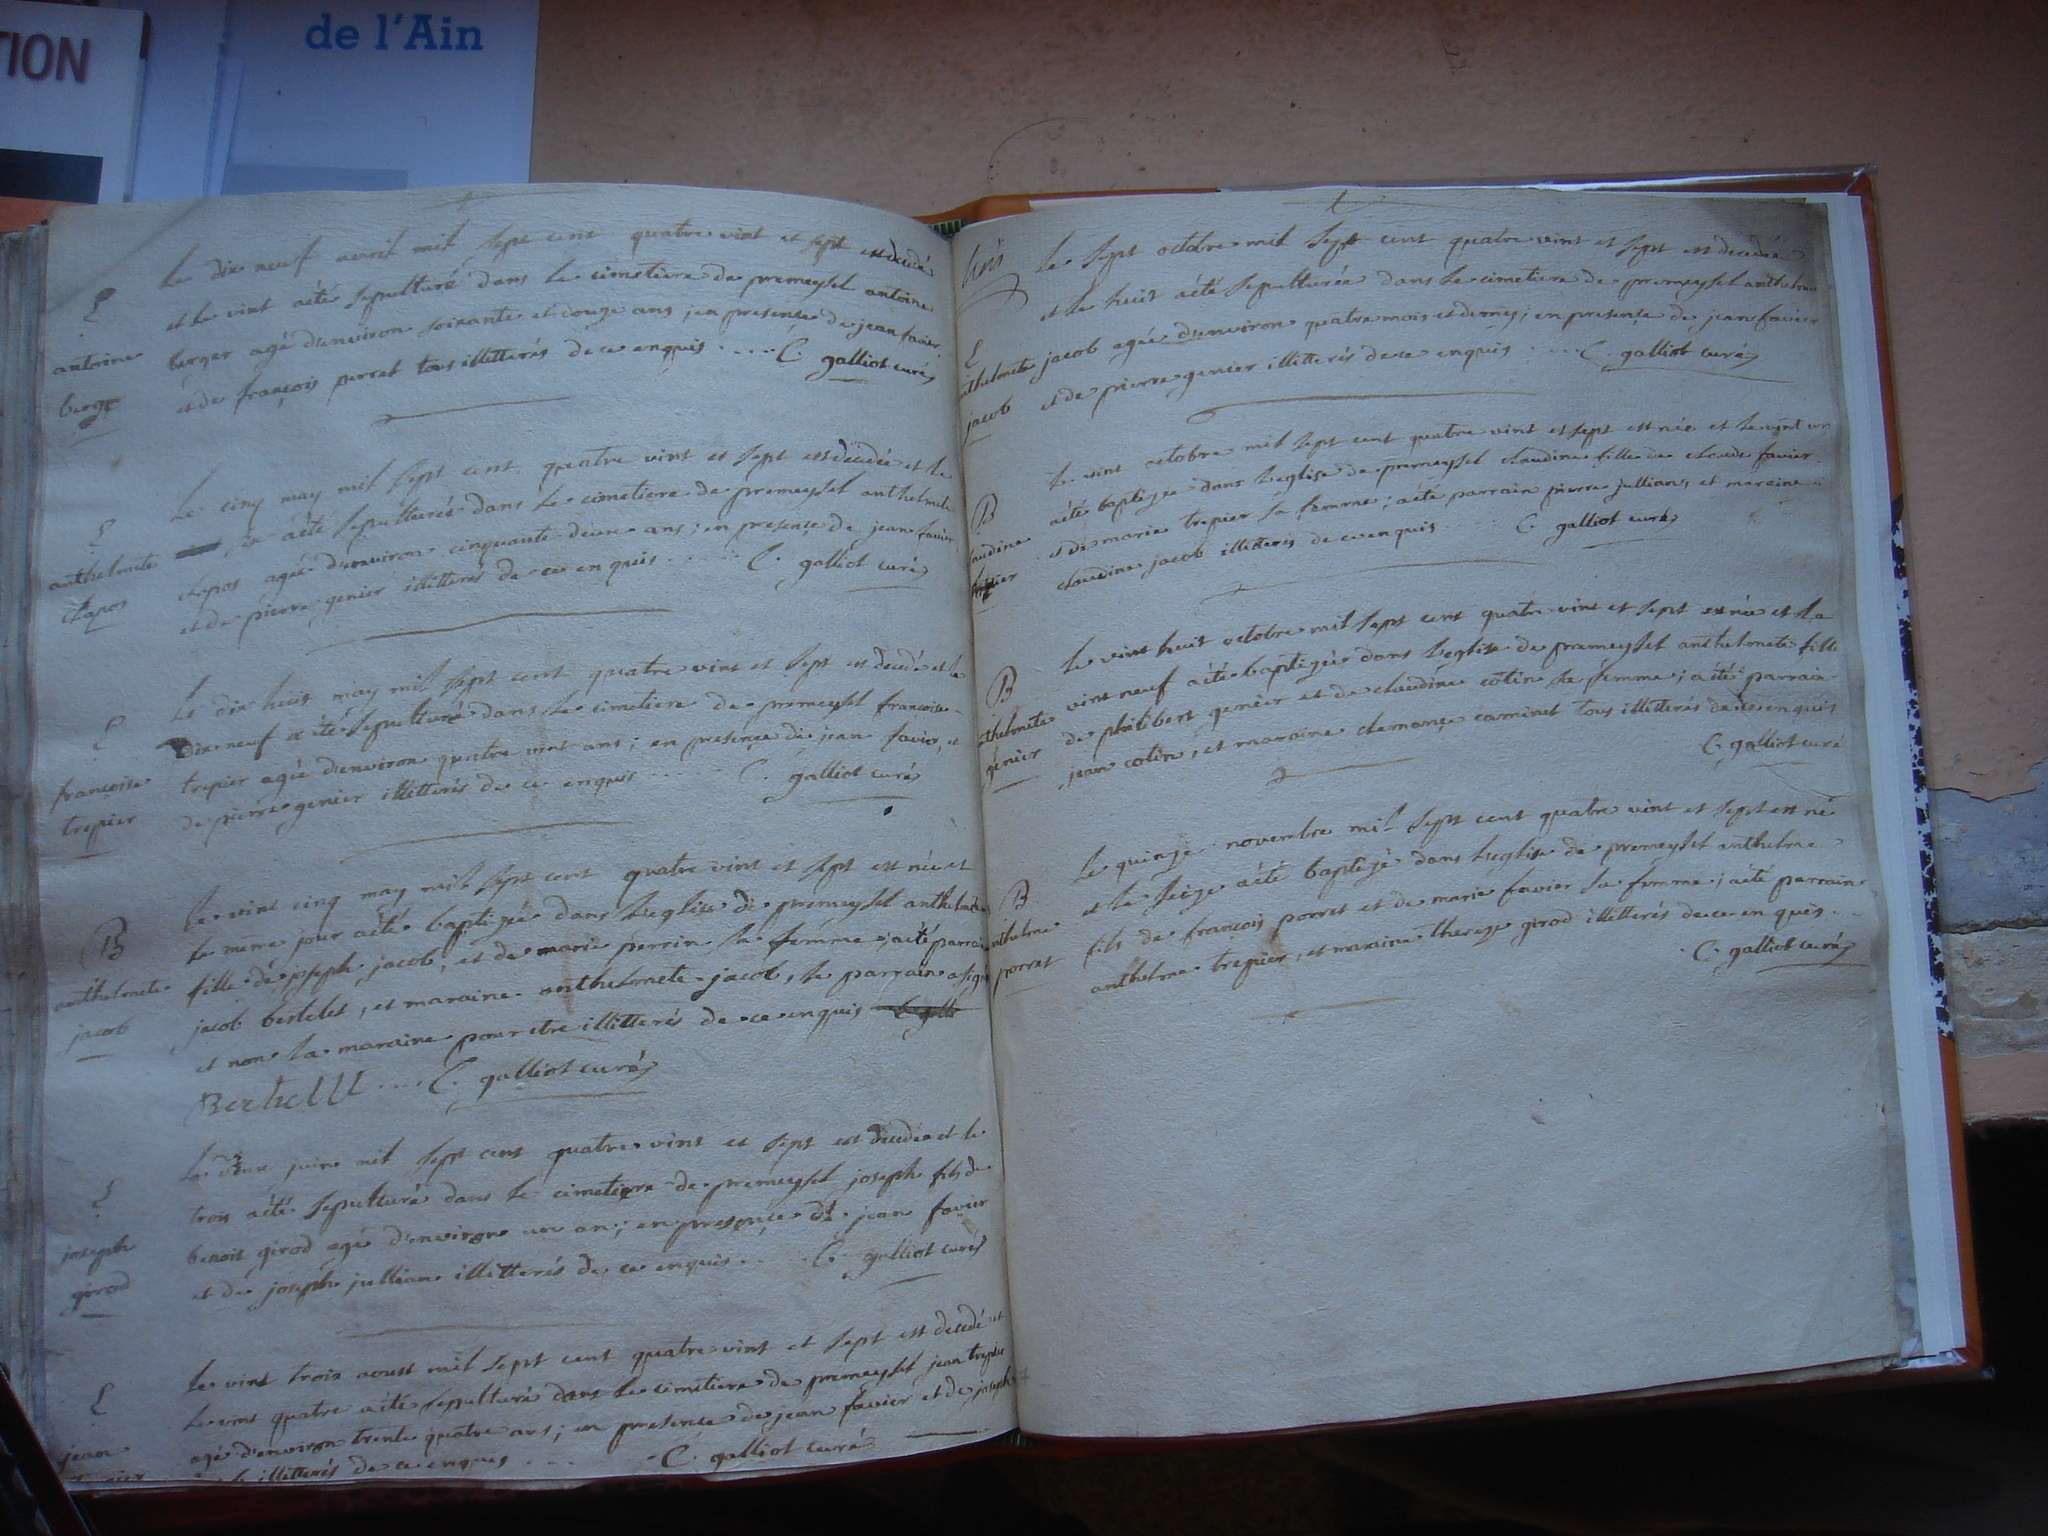 TION
de l'Ain
Le dix neuf avril mil sept cent quatre vint et sept est decedé
et le vint a été sepulturé dans le cimetiere de premeysel antoine
berger agé d'environ soixante et douze ans ; en presençe de jean favier
et de françois perret tous illitterés de ce enquis .... C. galliot curé
S
antoine
berger
Le cinq may mil sept cent quatre vint et sept est decedée et le
a été sepulturée dans le cimetiere de premeysel anthelmete
clapos agée d'environ cinquante deux ans ; en presençe de jean favier
et de pierre genier illitterés de ce enquis ..... C. galliot curé
S
anthelmete
clapos
Le dix huit may mil sept cent quatre vint et sept est decedé et le
Dix neuf a été sepulturé dans le cimetiere de premeysel françoise
trepier agée d'environ quatre vint ans ; en presençe de jean favier, et
de pierre genier illitterés de ce enquis ..... C. galliot curé
S
françoise
trepier
Le vint cinq may mil sept cent quatre vint et sept est née et
le meme jour a été baptizée dans l'eglise de premeysel anthelmete
fille de joseph jacob, et de marie perrin sa femme ; a été parrain
jacob bertelet, et maraine anthelmete jacob, le parrain a signé
et non la maraine pour etre illitterés de ce enquis
.... C. galliot curé
B
anthelmete
jacob
Le deux juin mil sept cent quatre vint et sept est decedé et le
trois a été sepulturé dans le cimetiere de premeysel joseph fils de
benoit girod agé d'environ un an ; en presençe de jean favier
et de joseph jullian illitterés de ce enquis .... C. galliot curé
S
joseph
girod
Le vint trois aoust mil sept cent quatre vint et sept est decedé et
le vint quatre a été sepulturé dans le cimetiere de premeysel jean trepier
agé d'environ trente quatre ans ; en presençe de jean favier et de joseph
illitterés de ce enquis .... C. galliot curé
S
jean
trepier
le sept octobre mil sept cent quatre vint et sept est decedée
et le huit a été sepulturée dans le cimetiere de premeysel anthelmete
jacob agée d'environ quatre mois et demy ; en presençe de jean favier
et de pierre genier illitterés de ce enquis .... C. galliot curé
S
anthelmete
jacob
le vint octobre mil sept cent quatre vint et sept est née et le vint un
a été baptizée dans l'eglise de premeysel claudine fille de claude favier
et de marie trepier sa femme ; a été parrain pierre jullian, et maraine
claudine jacob illitterés de ce enquis .. C. galliot curé
B
claudine
Le vint huit octobre mil sept cent quatre vint et sept est née et le
vint neuf a été baptizée dans l'eglise de premeysel anthelmete fille
de philibert genier et de claudine cotin sa femme ; a été parrain
jean cotin, et maraine clemançe caminet tous illitterés de ce enquis
C. galliot curé
B
anthelmete
genier
Le quinze novembre mil sept cent quatre vint et sept est né
et le seize a été baptizé dans l'eglise de premeysel anthelme
fils de françois porret et de marie favier sa femme ; a été parrain
anthelme trepier, et maraine thereze girod illitterés de ce enquis ..
. C. galliot curé
B
anthelme
porret